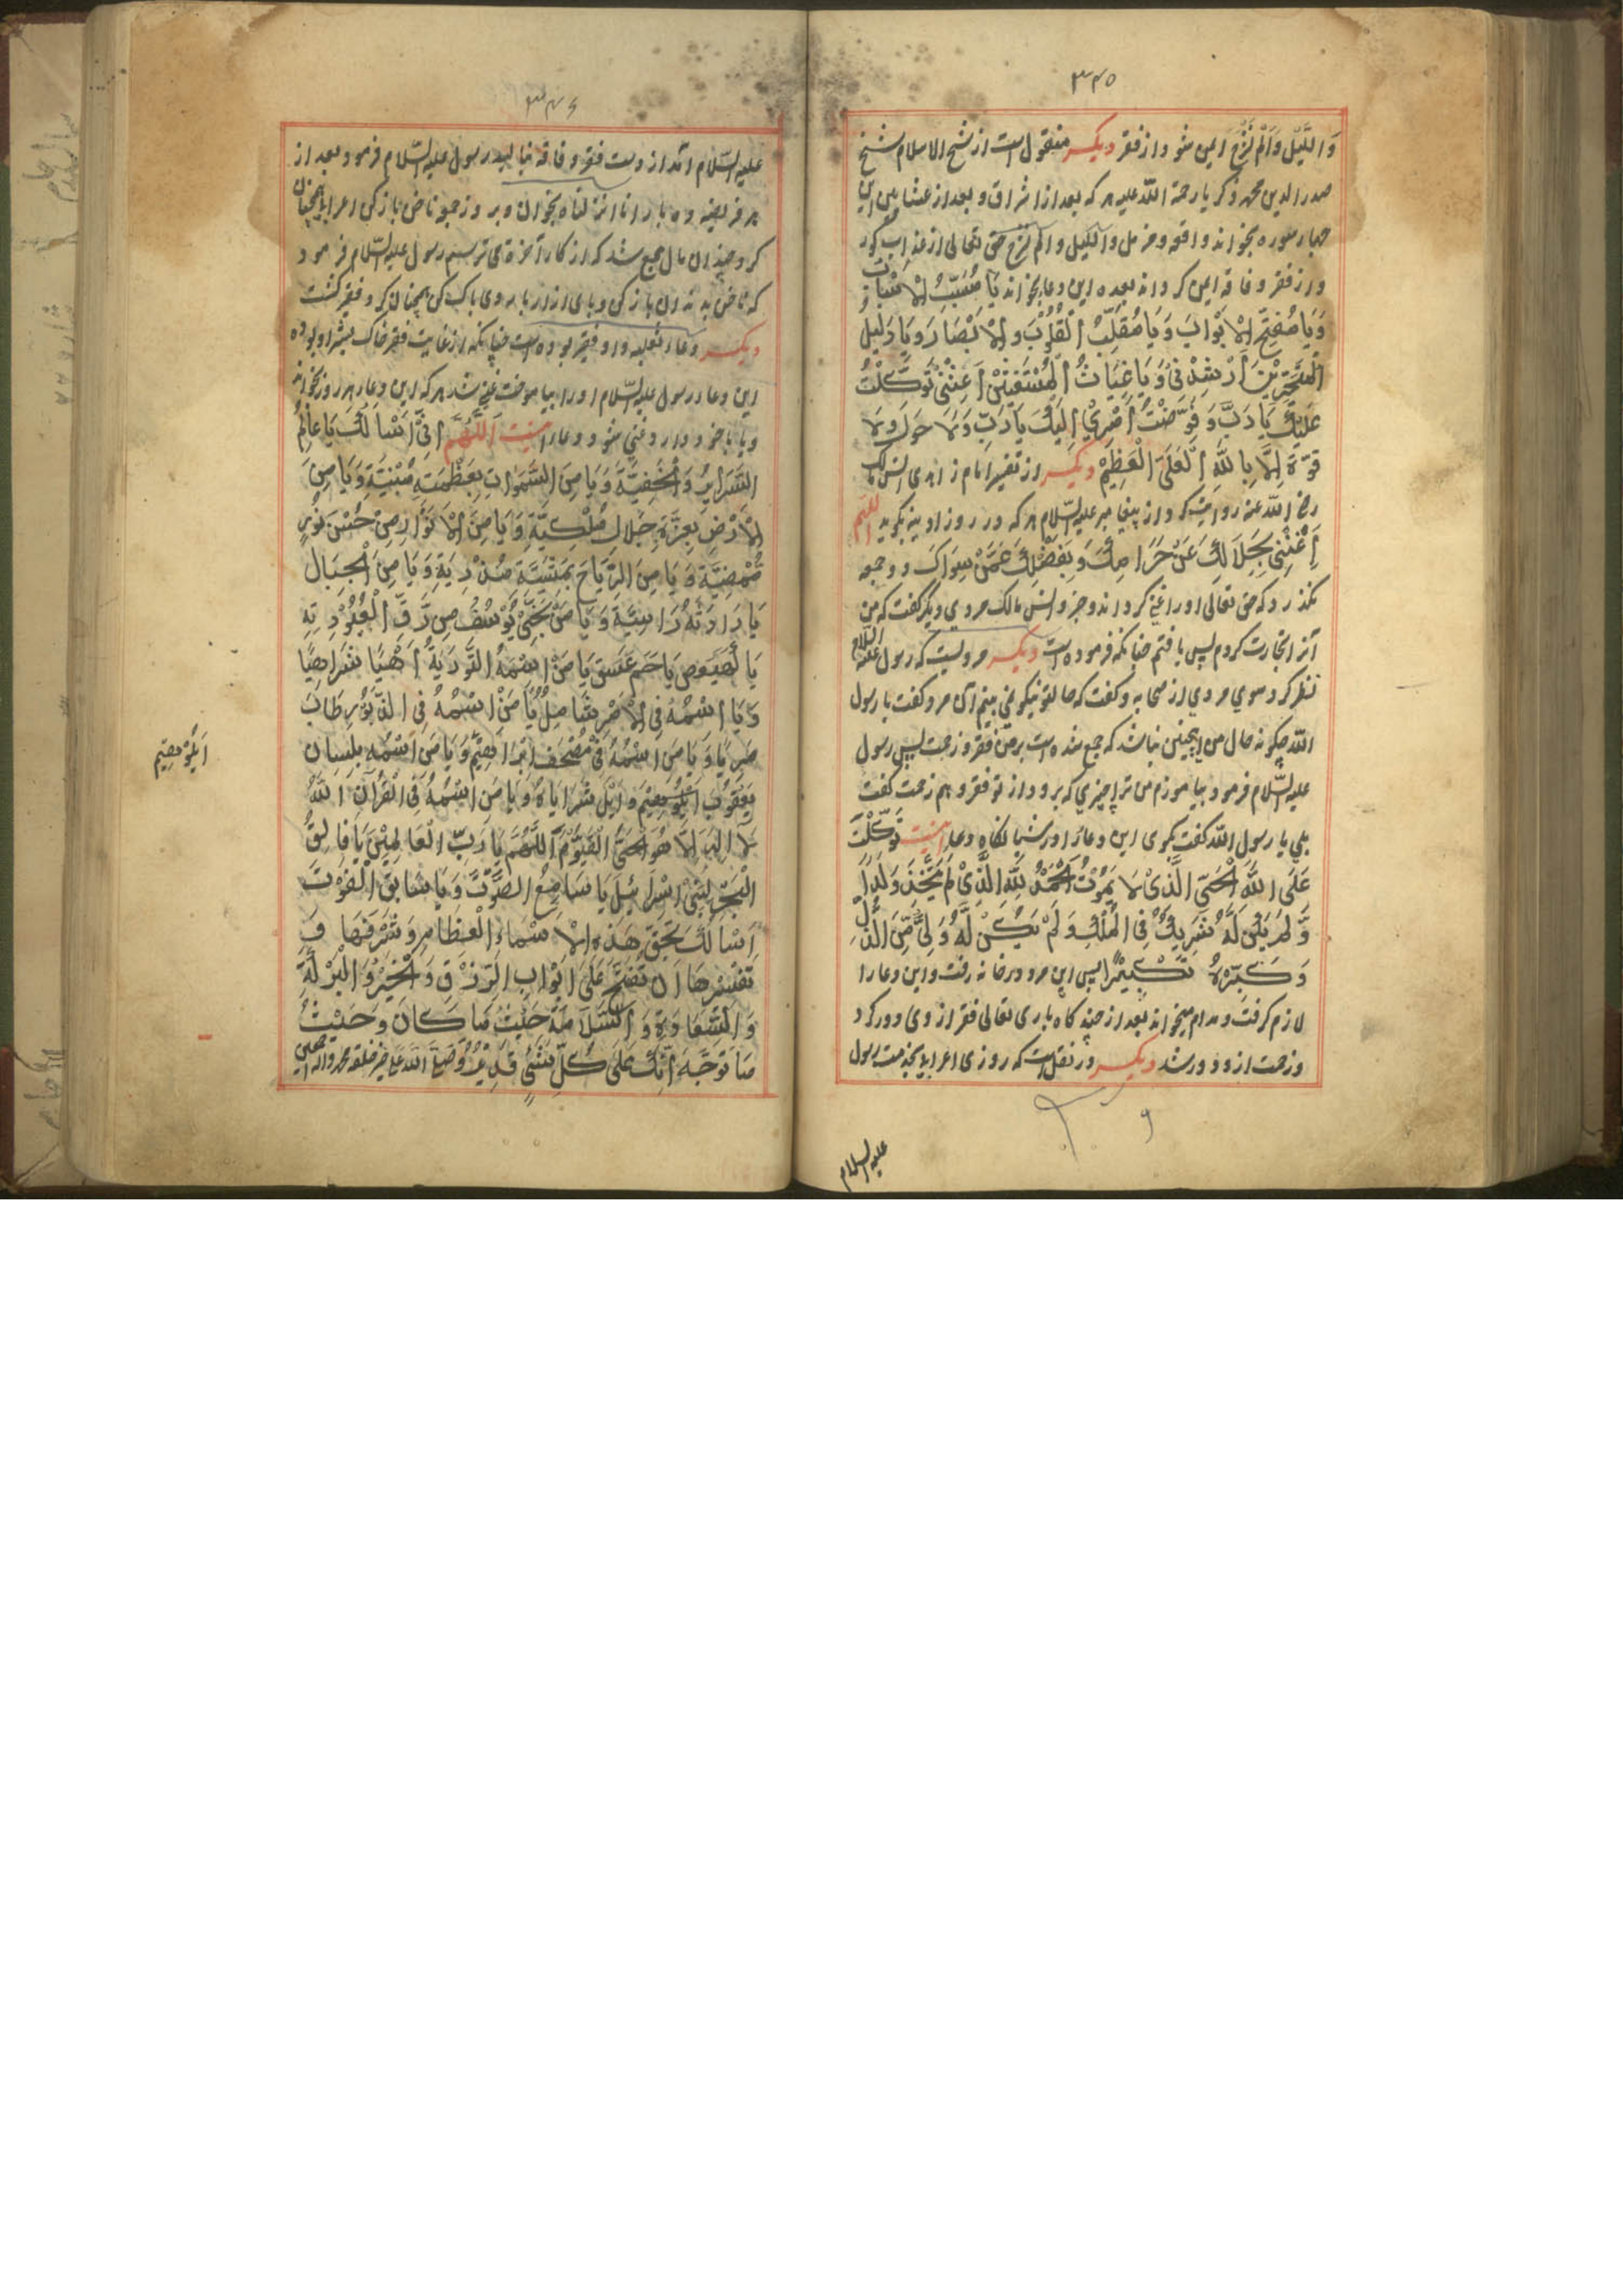 ٣٤٥
وَاللَّیْل وَاَلَمْ نَشْرَحْ ایمن شود از فقر دیکر منقول است از شیخ الاسلام شیخ
صدر الدین محمد زکریا رحمة الله علیه هر که بعد از اشراق و بعد از عشا پس این
چهار سوره بخواند واقعه و مزمل واللیل والم نشرح حق تعالی از عذاب کور
و از فقر و فاقه ایمن کرداند بعده این دعا بخواند یَا مُسَبِّبَ الْاَسْبَابِ
وَیَا مُفَتِّحَ الْاَبْوَابَ وَیَا مُقَلِّبَ الْقُلُوْبَ وَالْاَبْصَارَ وَیَا دَلِیْلَ
الْمُتَحَیِّرِیْنَ اَرْشِدْنِیْ وَیَا غِیَاثَ الْمُسْتَغِیْثِیْنَ اَغِثْنِیْ تَوَکَّلْتُ
عَلَیْكَ یَا رَبِّ وَفَوَّضْتُ اَمْرِیْ اِلَیْكَ یَا رَبِّ وَلَا حَوْلَ وَلَا
قُوَّةَ اِلَّا بِاللّٰهِ الْعَلِیِّ الْعَظِیْمِ دیکر از تفسیر امام زاهدی انس مالک
رضی الله عنه روایت کرد از پیغامبر علیه السّلام هر که در روز ادینه بکوید اللهم
اَغْنِنِیْ بِحَلَالِكَ عَنْ حَرَامِكَ وَبِفَضْلِكَ عَمَّنْ سِوَاكَ دو جمعه
نکذرد که حق تعالی او را غنی کرداند و جز و انس مالک مردی دیکر کفت که من
آنرا تجارت کردم پس یافتم چنانکه فرموده است دیکر مرویست که رسول علیه السلام
نظر کرد سوی مردی از صحابه و کفت که حال تو نیکو نمی بینم آن مرد کفت یا رسول
الله چکونه حال من اینچنین نباشد که جمع شده است بر من فقر و زحمت پس رسول
علیه السّلام فرمود بیاموزم من ترا چیزی که برود از تو فقر و هم زحمت کفت
بلی یا رسول الله کفت بکوی این دعا را در شبانکاه دعا اینست تَوَکَّلْتُ
عَلَی اللّٰهِ الْحَیِّ الَّذِیْ لَا یَمُوْتُ اَلْحَمْدُ لِلّٰهِ الَّذِیْ لَمْ یَتَّخِذْ وَلَدًا
وَّلَمْ یَكُنْ لَّهُ شَرِیْكٌ فِی الْمُلْكِ وَلَمْ یَكُنْ لَّهُ وَلِیٌّ مِّنَ الذُّلِّ
وَکَبِّرْهُ تَکْبِیْرًا پس این مرد در خانه رفت و این دعا را
لازم کرفت و مدام میخواند بعد از چند کاه باری تعالی فقر از وی دور کرد
و زحمت از و دور شد دیکر در نقل است که روزی اعرابی بخدمت رسول
علیه السلام
٣٤٦
علیه السّلام آمد از دست فقر و فاقه بنالید رسول علیه السّلام فرمود بعد از
هر فریضه ده بار انا انزلناه بخوان و بروز جمعه ناخن باز کن اعرابی همچنان
کرد چندان مال جمع شد که از کار آخرة می ترسم رسول علیه السّلام فرمود
که ناخن بدندان باز کن و پای ازار با روی پاک کن همچنان کرد فقیر کشت
دیکر دعاء ثعلبه و او فقیر بوده است چنانکه از غایت فقر خاک بیشتر او بوده
این دعا رسول علیه السّلام او را بیاموخت غنی شد هر که این دعا هر روز بخواند
و یا با خود دارد غنی شود دعا اینست اَللّٰهُمَّ اِنِّیْ اَسْاَلُكَ یَا عَالِمَ
السَّرَایِرِ وَالْخَفِیَّةِ وَیَا مَنِ السَّمٰوَاتِ بِعَظْمَتِهِ مَبْنِیَّةٍ وَیَا مَنِ
الْاَرْضِ بِعِزَّةِ جَلَالِ مُلْکِیَّةٍ وَیَا مَنِ الْاَنْوَارِ مِنْ حُسْنِ نُوْرِهِ
مُّضِیَّةٍ وَیَا مَنِ الرِّیَاحَ بِمَشِیَّةِ وَیَا مَنِ الْجِبَالِ
یَا رَادَتَهُ رَاسِیَةٍ وَیَا مَنْ نَجَّیٰ یُوْسُفَ مِنْ رِّقِّ الْعُبُوْدِیَّةِ
یَا کٓهٰیٰعٓصٓ یَا حٰمٓ عٓسٓقٓ یَا مَنْ اِسْمُهُ التَّوْرَیةُ اَهْیًا شَرَاهِیًا
وَیَا اسْمُهُ فِی وَیَا مَنْ اِسْمُهُ فِی الزَّبُوْرِ طَابَ
وَیَا مَنِ اسْمُهُ فِیْ مُصْحَفِ اِبْرَاهِیْمَ وَیَا مَنِ اسْمُهُ بِلِسَانِ
یَعْقُوْبَ شَرَایَاهُ وَیَا مَنِ اسْمُهُ فِی الْقُرْآنِ اللّٰهُ
لَا اِلٰهَ اِلَّا هُوَ الْحَیُّ الْقَیُّوْمُ اَللّٰهُمَّ یَا رَبَّ الْعَالَمِیْنَ یَا فَالِقَ
الْبَحْرِ لِبَنِیْ اِسْرَائِیْلَ یَا سَامِعَ الصَّوْتِ وَیَا سَابِقَ الْفَوْتِ
اَسْاَلُكَ بِحَقِّ هٰذِهِ الْاَسْمَاءِ الْعِظَامِ وَشَرَفِهَا وَ
تَفْسِیْرِهَا اَنْ تَفْتَحَ عَلَیَّ اَبْوَابَ الرِّزْقِ وَالْخَیْرِ وَالْبَرَکَةِ
وَالسَّعَادَةِ وَالسَّلَامَةِ حَیْثُ مَا کَانَ وَحَیْثُ
مَا تَوَجَّهَ اِنَّكَ عَلٰی کُلِّ شَیْءٍ قَدِیْرٌ وَصَلَّی اللّٰه عَلٰی خیر خلقه محمد واله اجمعین